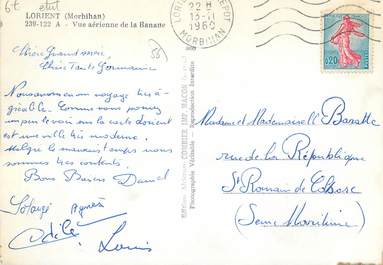 6f état
LORIENT (Morbihan)
239-122 A - Vue aérienne de la Banane
58
LORIENT
22 H
15-11
1960
MORBIHAN
0,20
Chère Grand mère
Chère Tante Germaine
Nous avons eu un voyage très a-
gréable. Comme vous pouvez
un peu le voir sur la carte Lorient
est une ville très moderne.
Malgré le mauvais temps nous
sommes très contents.
Bons Baisers Daniel
Solange Agnès
Odile Louis
Madame et Mademoiselle Banatte
rue de la République
St Romain de Colbosc
(Seine Maritime)
COMBIER IMP. MACON
Photographie Véritable - Reproduction Interdite